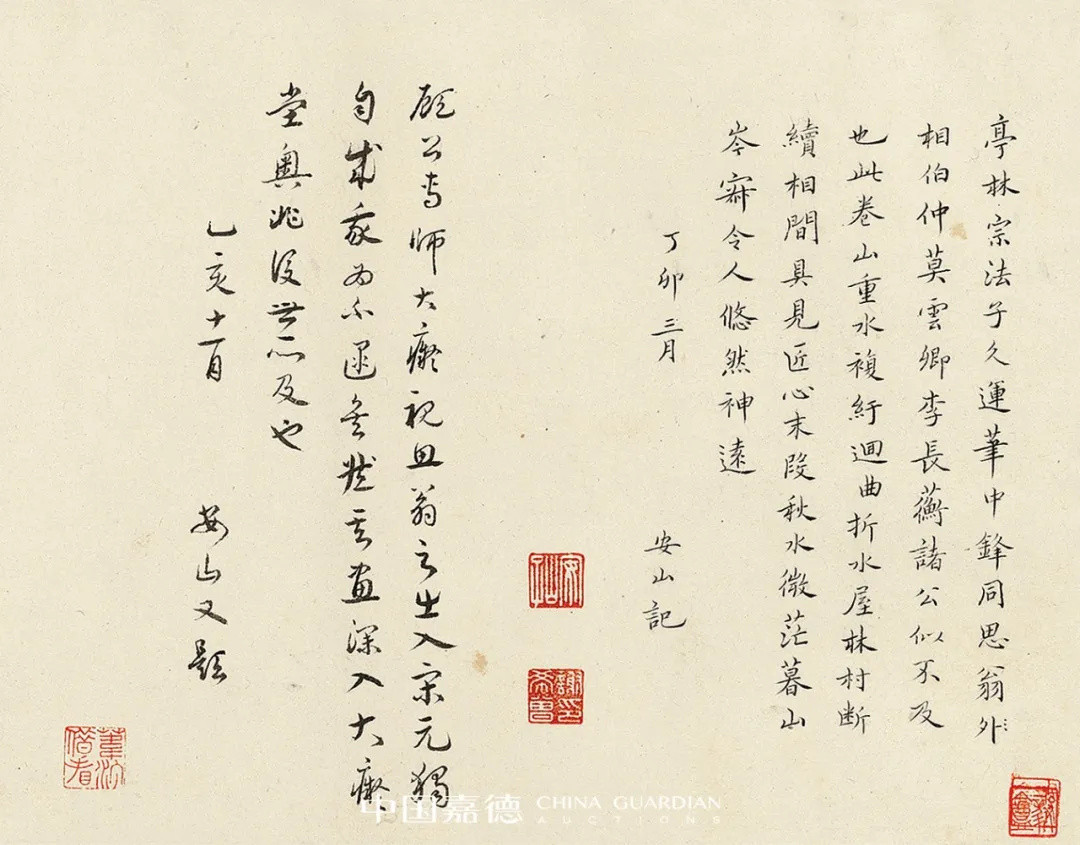 亭林宗法子久運筆中鋒同思翁外
相伯仲莫雲卿李長蘅諸公似不及
也此卷山重水複紆迴曲折水屋林村断
續相間具見匠心末段秋水微茫暮山
岑寂令人悠然神遠
丁卯三月
安山記
顧公專師大癡視思翁之出入宋元獨
自成家為不逮矣然其畫深入大癡
堂奧非後世所及也
乙亥十一月
安山又題
安山
謝印希曾
中国嘉德 CHINA GUARDIAN
AUCTIONS